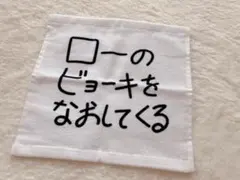 ロ一の
ビョーキを
なおしてくる